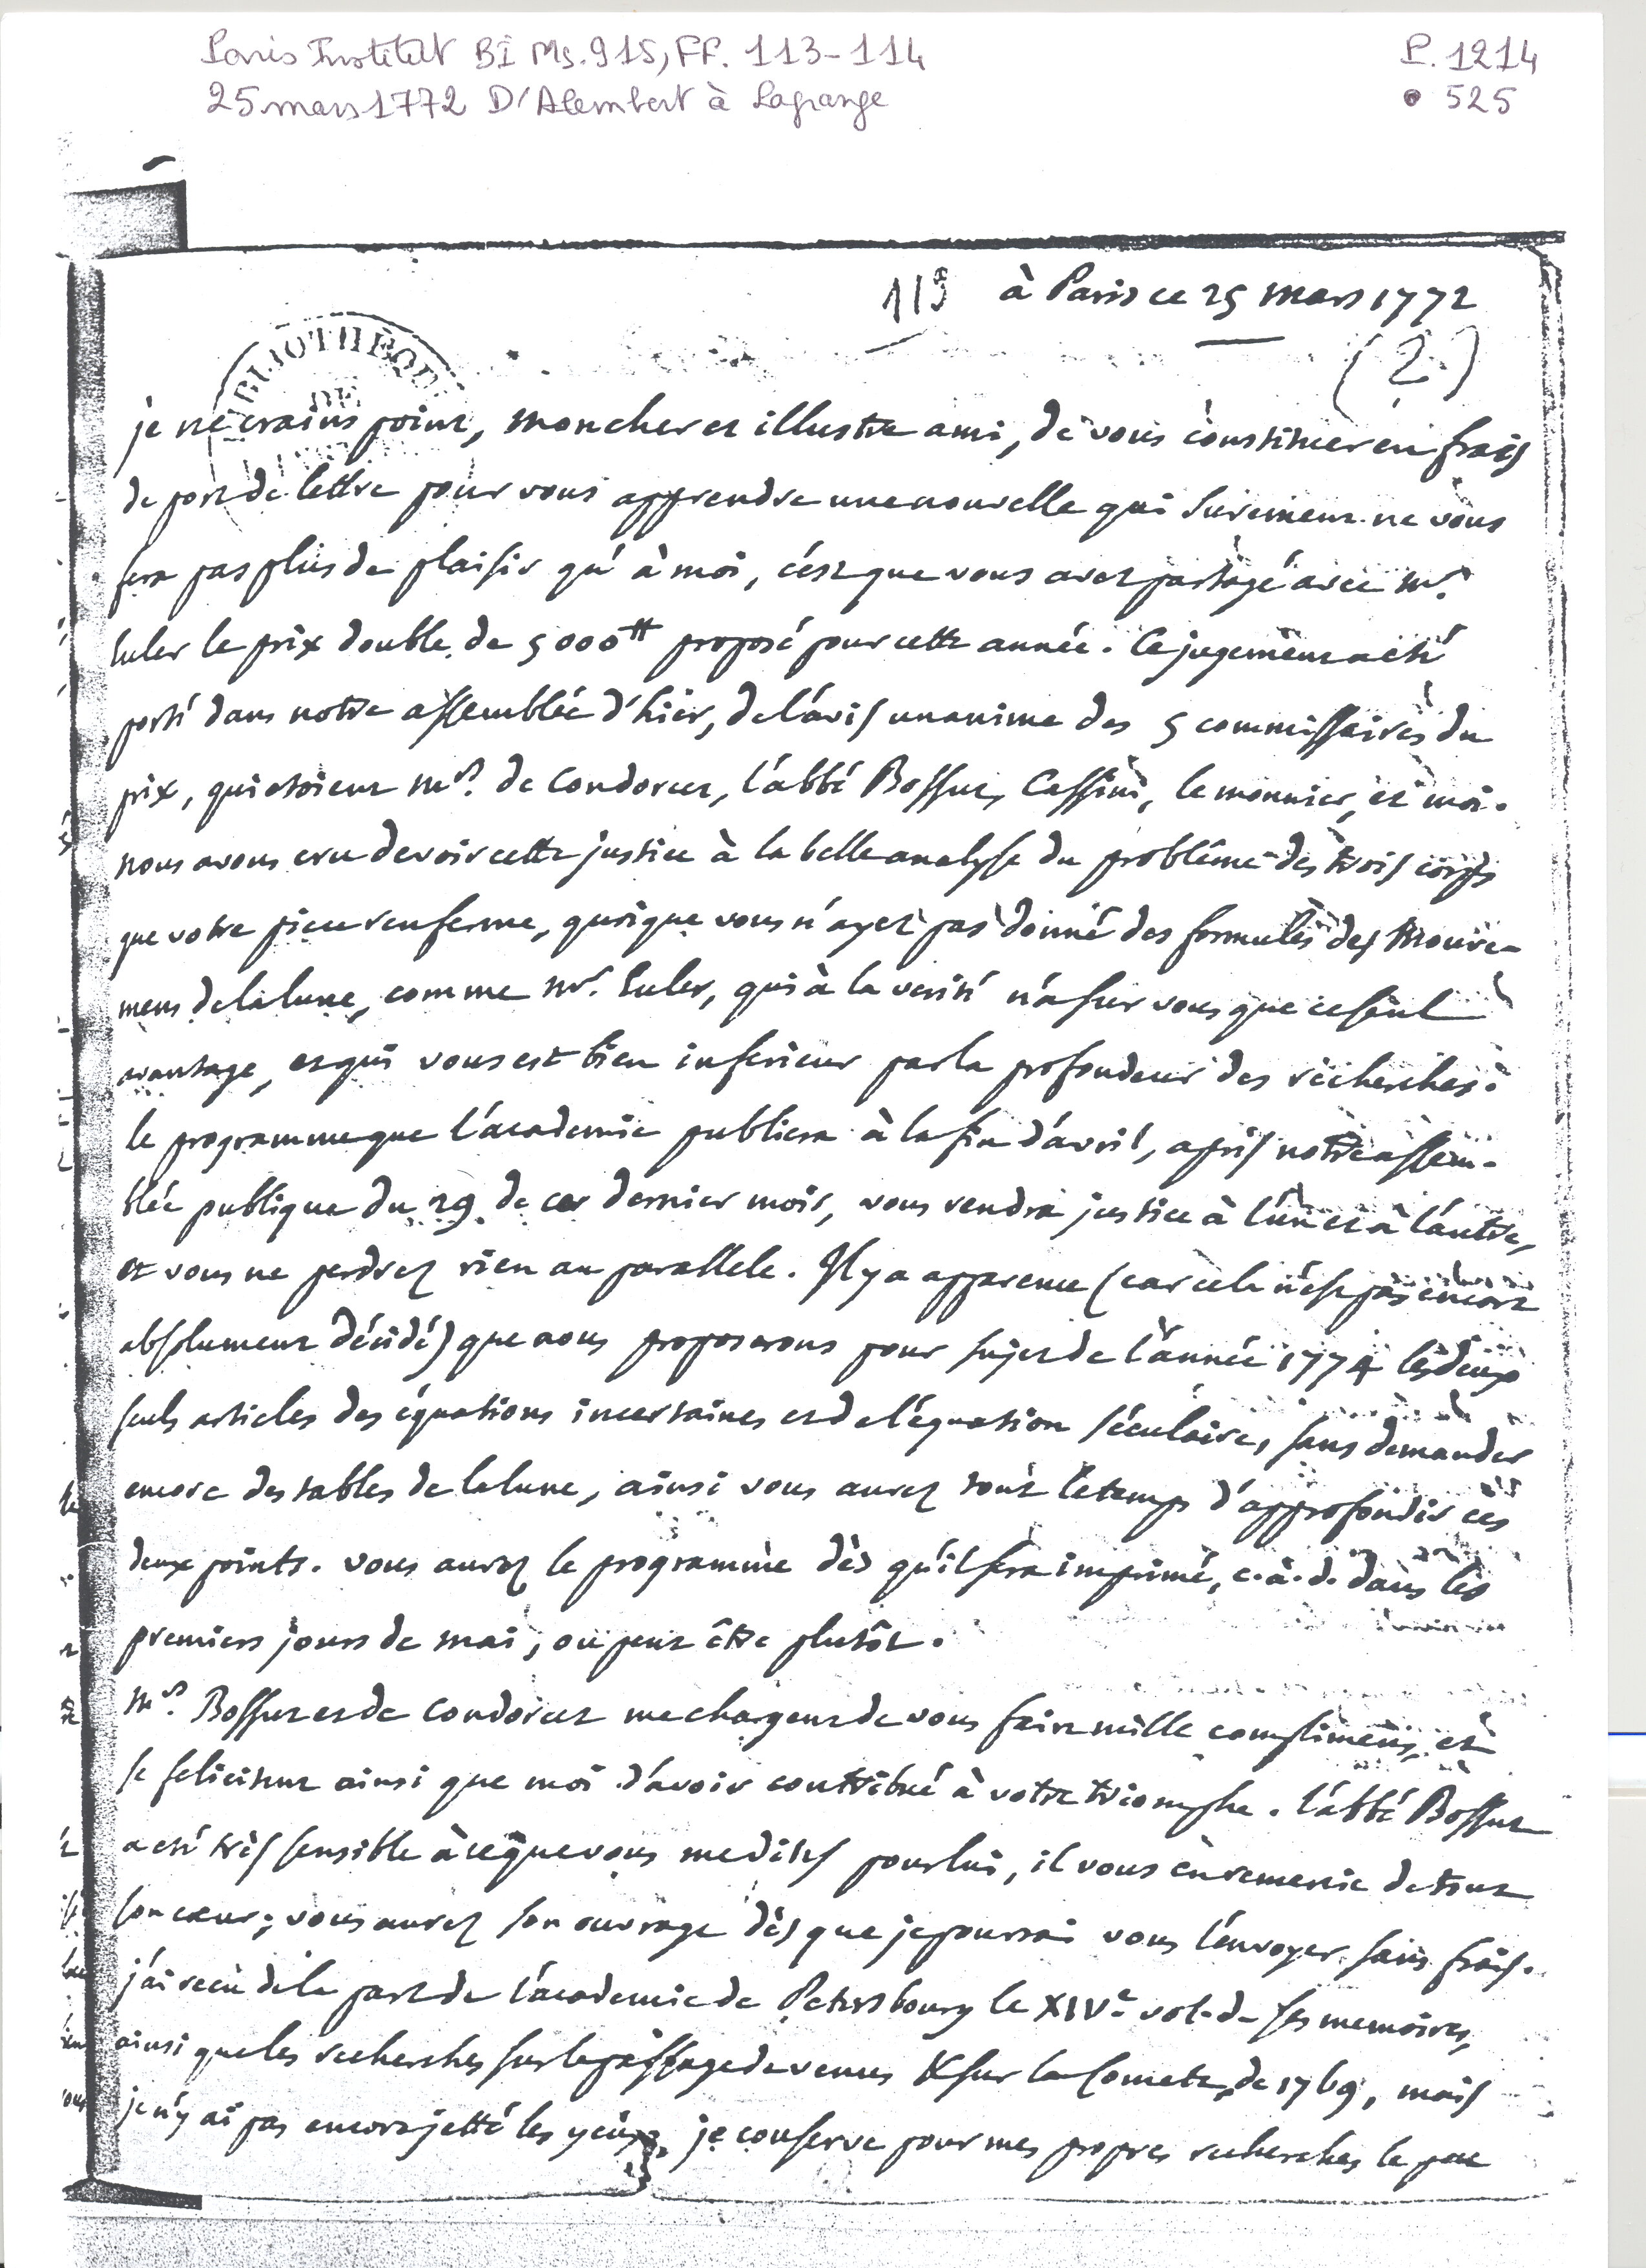 Paris Institut BI Ms. 915, FF. 113-114
P. 1214
25 mars 1772 D'Alembert à Lagrange
525
113 à Paris ce 25 mars 1772
(2)
BIBLIOTHEQUE
DE
je ne crains point, mon cher et illustre ami, de vous constituer en frais
de port de lettre pour vous apprendre une nouvelle qui surement ne vous
fera pas plus de plaisir qu'à moi, c'est que vous avez partagé avec mr.
Euler le prix double de 5000tt proposé pour cette année. Ce jugement a été
porté dans notre assemblée d'hier, de l'avis unanime des 5 commissaires du
prix, qui etoient mrs. de Condorcet, l'abbé Bossut, Cassini, le monnier, et moi.
nous avons cru devoir cette justice à la belle analyse du problême des trois corps
que votre piece renferme, quoique vous n'ayez pas donné des formules des mouve-
mens de la lune, comme mr. Euler, qui à la verité n'a sur vous que ce seul
avantage, et qui vous est bien inferieur par la profondeur des recherches.
le programme que l'academie publiera à la fin d'avril, après notre assem-
blée publique du 29 de ce dernier mois, vous rendra justice à l'un et à l'autre,
et vous ne perdrez rien au parallele. Il y a apparence (car cela n'est pas encore
absolument décidé) que nous proposerons pour sujet de l'année 1774 les deux
seuls articles des équations incertaines et de l'équation séculaire, sans demander
encore des tables de la lune, ainsi vous aurez tout le temps d'approfondir ces
deux points. vous aurez le programme dès qu'il sera imprimé, c.à.d. dans les
premiers jours de mai, ou peut être plutôt.
mrs. Bossut et de Condorcet me chargent de vous faire mille complimens, et
se felicitent ainsi que moi d'avoir contribué à votre triomphe. l'abbé Bossut
a eté très sensible à ce que vous me dites pour lui, il vous en remercie de tout
son coeur; vous aurez son ouvrage dès que je pourrai vous l'envoyer sans frais.
j'ai recu de la part de l'academie de Petersbourg le XIVe vol. de ses memoires,
ainsi que les recherches sur le passage de venus & sur la Comete de 1769, mais
je n'y ai pas encore jetté les yeux, je conserve pour mes propres recherches le peu